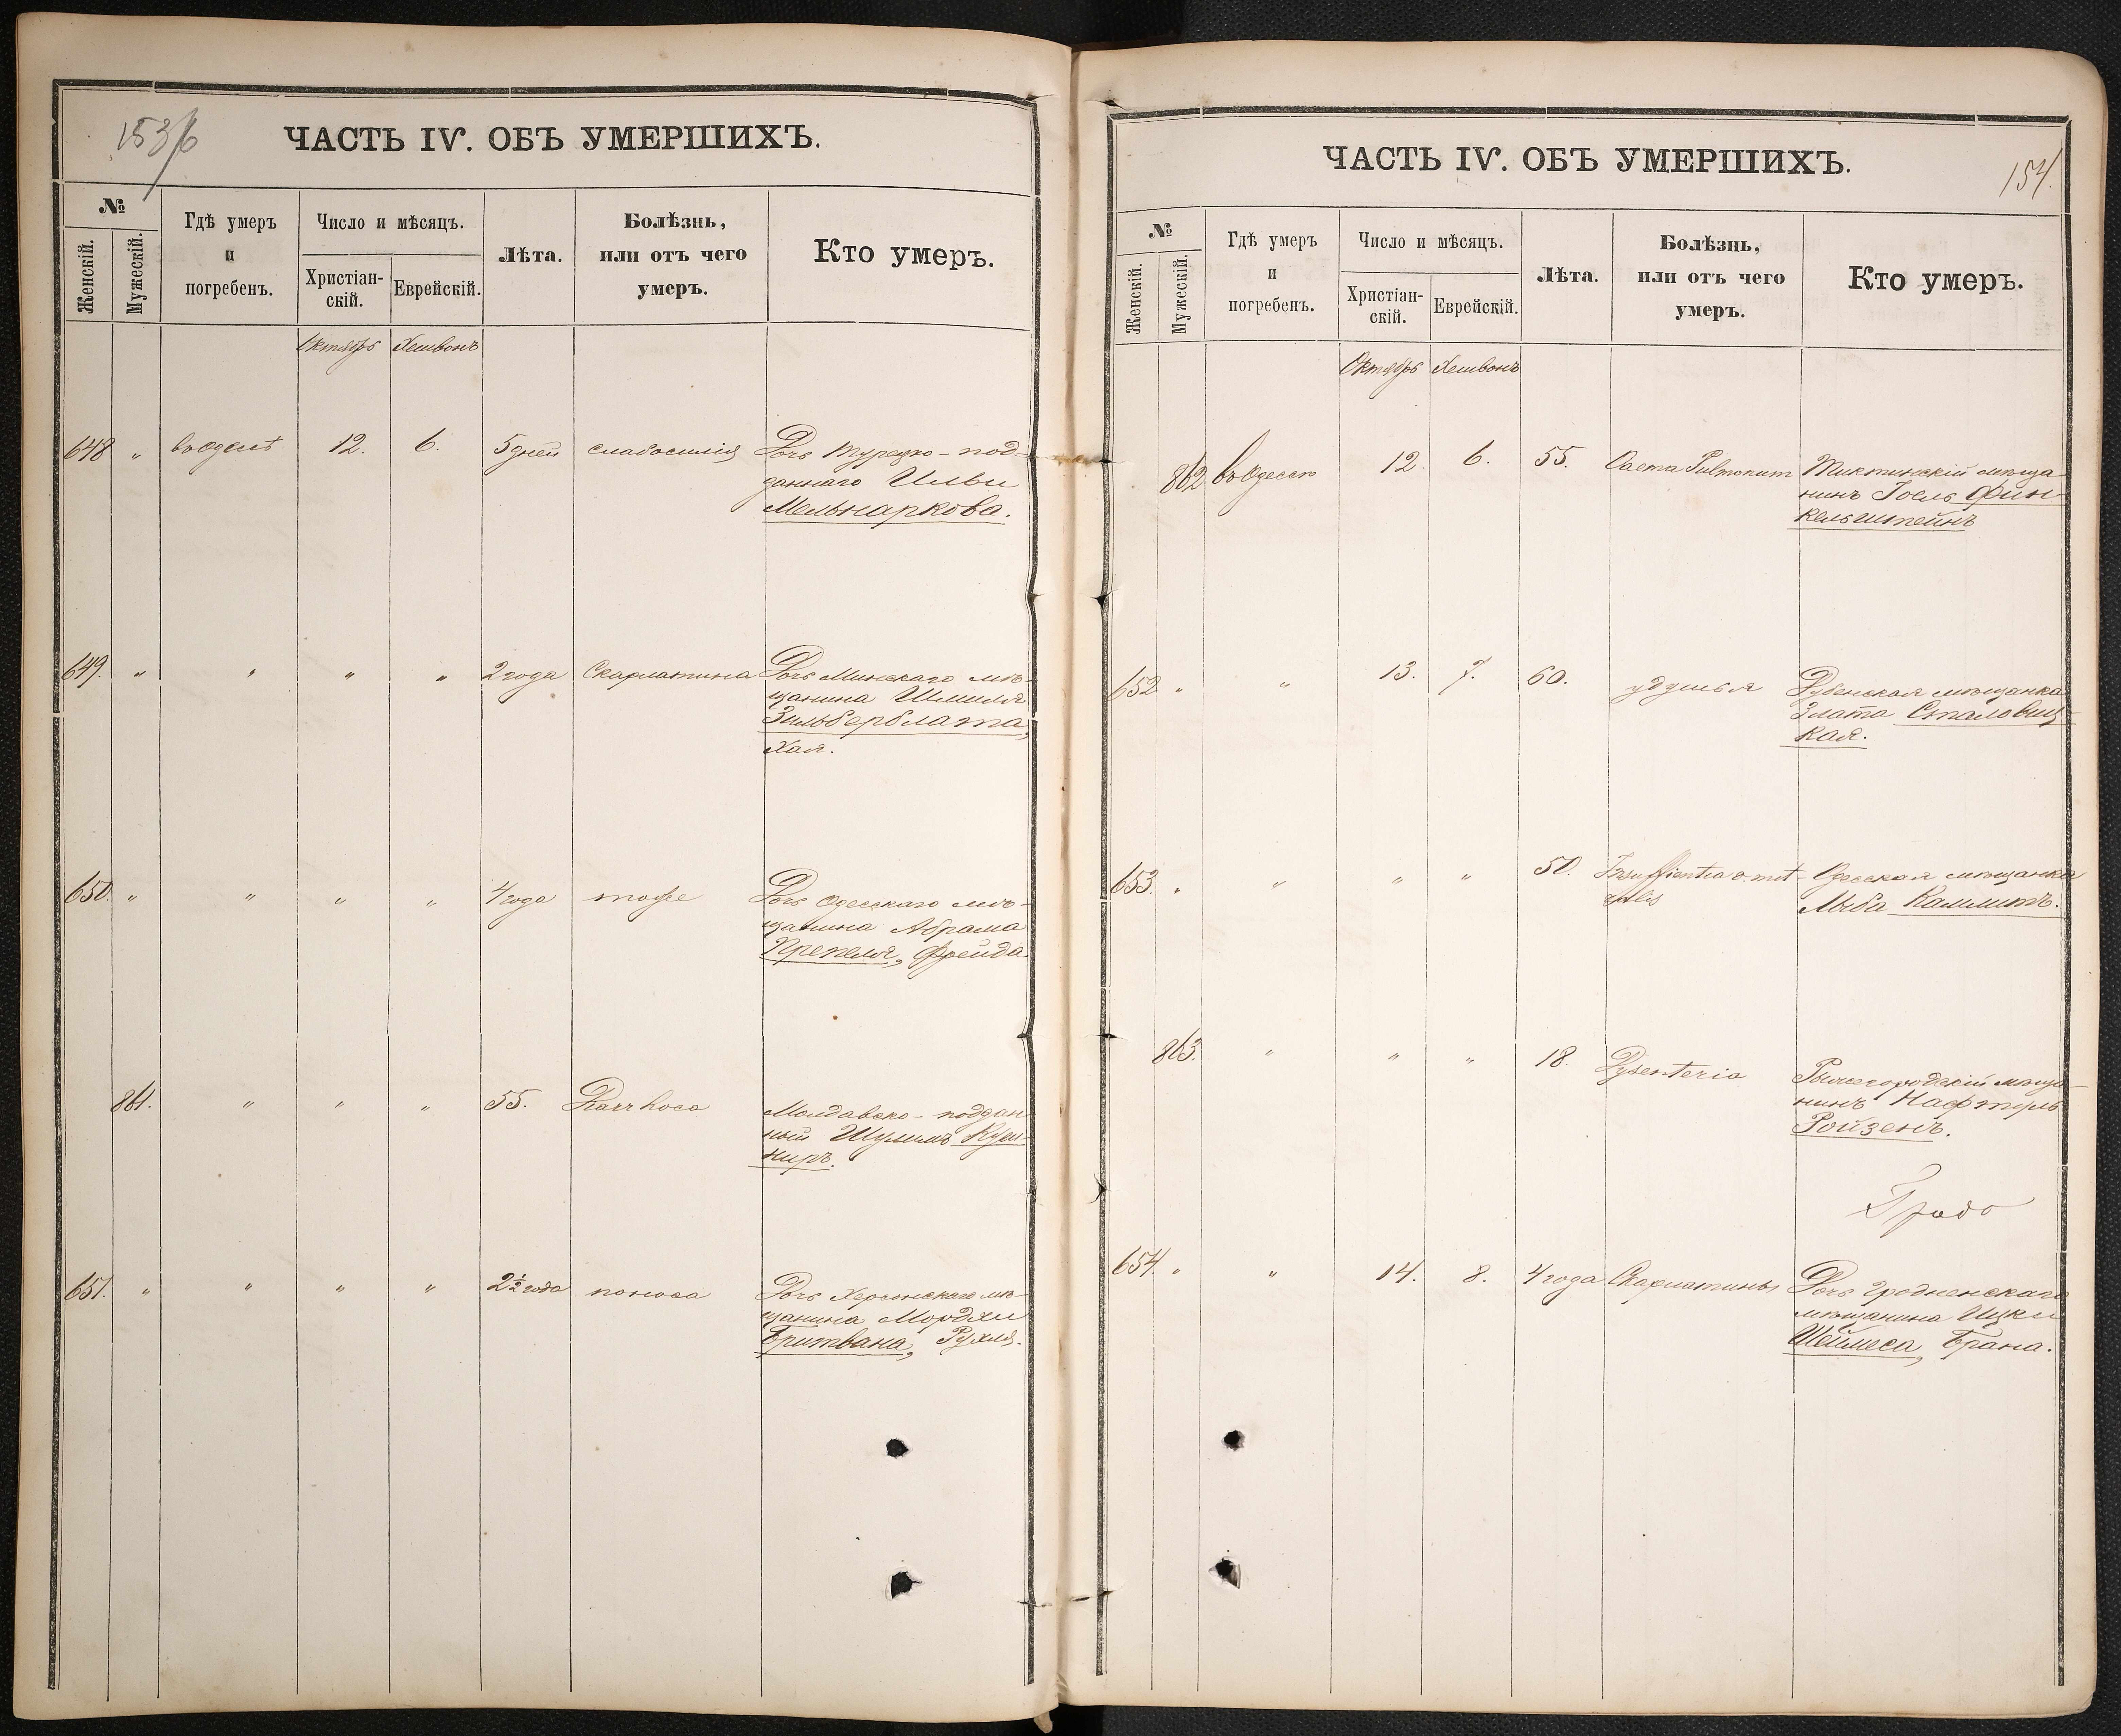 153/б
ЧАСТЬ IV. ОБЪ УМЕРШИХЪ.
№
Женскій.
Мужескій.
Гдѣ умеръ
и
погребенъ.
Число и мѣсяцъ.
Христіан-
скій.
Еврейскій.
Лѣта.
Болѣзнь,
или отъ чего
умеръ.
Кто умеръ.
Октябрь Хешвонъ
648 „ 12. 6. 5 дней слабосилія Дочь турецко-под-
даннаго
Мельнаркова.
649. „ „ „ „ 2 года Скарлатина Дочь Минскаго мѣ-
щанина Шмиля
Зильберблата,
Хая.
650. „ „ „ „ 4 года тоже Дочь Одесскаго мѣ-
щанина Абрама
Препеля, Фрейда.
861. „ „ „ 55. Diarrhoea Молдавско-поддан-
ный Шулимъ Куш-
ниръ.
651. „ „ „ „ 2½ года поноса Дочь Херсонскаго мѣ-
щанина Мордхи
Бритвана, Рухля.
154.
ЧАСТЬ IV. ОБЪ УМЕРШИХЪ.
№
Женскій.
Мужескій.
Гдѣ умеръ
и
погребенъ.
Число и мѣсяцъ.
Христіан-
скій.
Еврейскій.
Лѣта.
Болѣзнь,
или отъ чего
умеръ.
Кто умеръ.
Октябрь Хешвонъ
862 въ Одессѣ 12. 6. 55. Pulmonum мѣща-
нинъ Іоель Фин-
кельштейнъ
652 „ „ 13. 7. 60. удушья Дубенская мѣщанка
Злата Сталовиц-
кая.
653. „ „ „ „ 50. Одесская мѣщанка
863. „ „ „ 18. Dysenteria мѣща-
нинъ Нафтуль
Ройзенъ.
654. „ „ 14. 8. 4 года Скарлатины Дочь Гродненскаго
мѣщанина Ицки
Шеймеса, Брана.